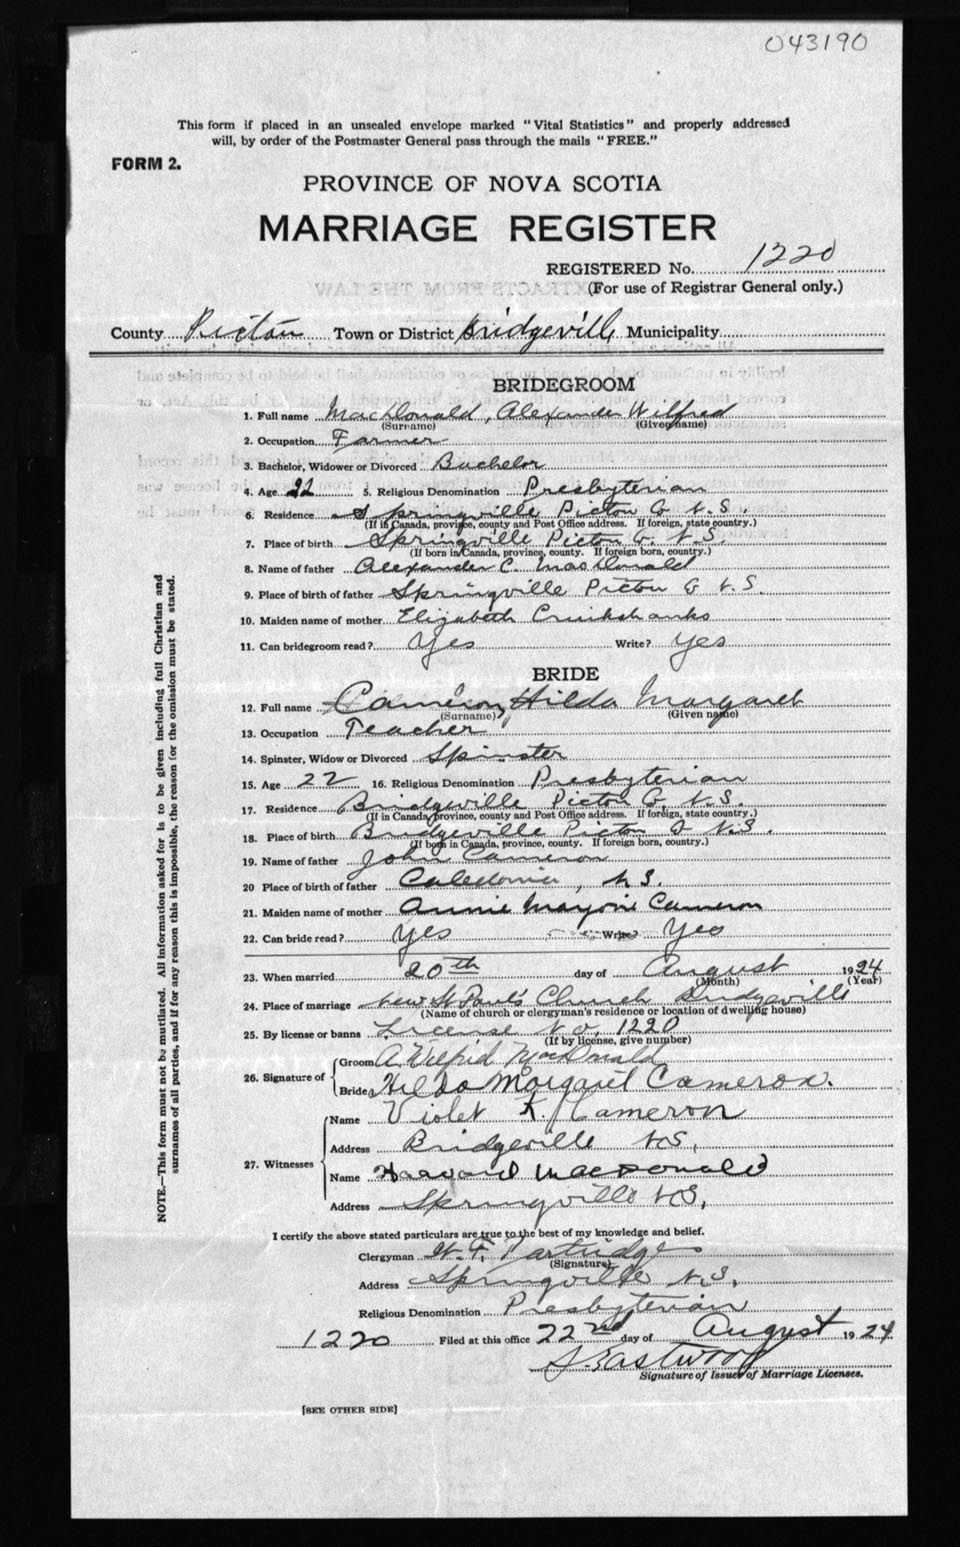 043190
This form if placed in an unsealed envelope marked "Vital Statistics" and properly addressed
will, by order of the Postmaster General pass through the mails "FREE."
FORM 2.
PROVINCE OF NOVA SCOTIA
MARRIAGE REGISTER
REGISTERED No. 1220
(For use of Registrar General only.)
County Pictou Town or District Bridgeville Municipality
BRIDEGROOM
1. Full name MacDonald, Alexander Wilfred
(Surname) (Given name)
2. Occupation Farmer
3. Bachelor, Widower or Divorced Bachelor
4. Age 5. Religious Denomination Presbyterian
6. Residence Springville Pictou Co N.S.
(If in Canada, province, county and Post Office address. If foreign, state country.)
7. Place of birth Springville Pictou Co. N.S.
(If born in Canada, province, county. If foreign born, country.)
8. Name of father Alexander C. MacDonald
9. Place of birth of father Springville Pictou Co N.S.
10. Maiden name of mother Elizabeth Cruikshanks
11. Can bridegroom read? Yes Write? Yes
BRIDE
12. Full name Cameron, Hilda Margaret
(Surname) (Given name)
13. Occupation Teacher
14. Spinster, Widow or Divorced Spinster
15. Age 22 16. Religious Denomination Presbyterian
17. Residence Bridgeville Pictou Co. N.S.
(If in Canada, province, county and Post Office address. If foreign, state country.)
18. Place of birth Bridgeville Pictou Co N.S.
(If born in Canada, province, county. If foreign born, country.)
19. Name of father John Cameron
20 Place of birth of father Caledonia, N.S.
21. Maiden name of mother Annie Marjorie Cameron
22. Can bride read? Yes Write? Yes
23. When married 20th day of August 1924
(Month) (Year)
24. Place of marriage New St Paul's Church Bridgeville
(Name of church or clergyman's residence or location of dwelling house)
25. By license or banns License No. 1220
(If by license, give number)
26. Signature of Groom A. Wilfrid MacDonald
Bride Hilda Margaret Cameron.
27. Witnesses
Name Violet A. Cameron
Address Bridgeville N.S.
Name Harvard MacDonald
Address Springville N.S.
I certify the above stated particulars are true to the best of my knowledge and belief.
Clergyman W. F. Partridge
(Signature)
Address Springville N.S.
Religious Denomination Presbyterian
1220 Filed at this office 22nd day of August 1924
S. Eastwood
Signature of Issuer of Marriage Licenses.
[SEE OTHER SIDE]
NOTE.—This form must not be mutilated. All information asked for is to be given including full Christian and
surnames of all parties, and if for any reason this is impossible, the reason for the omission must be stated.